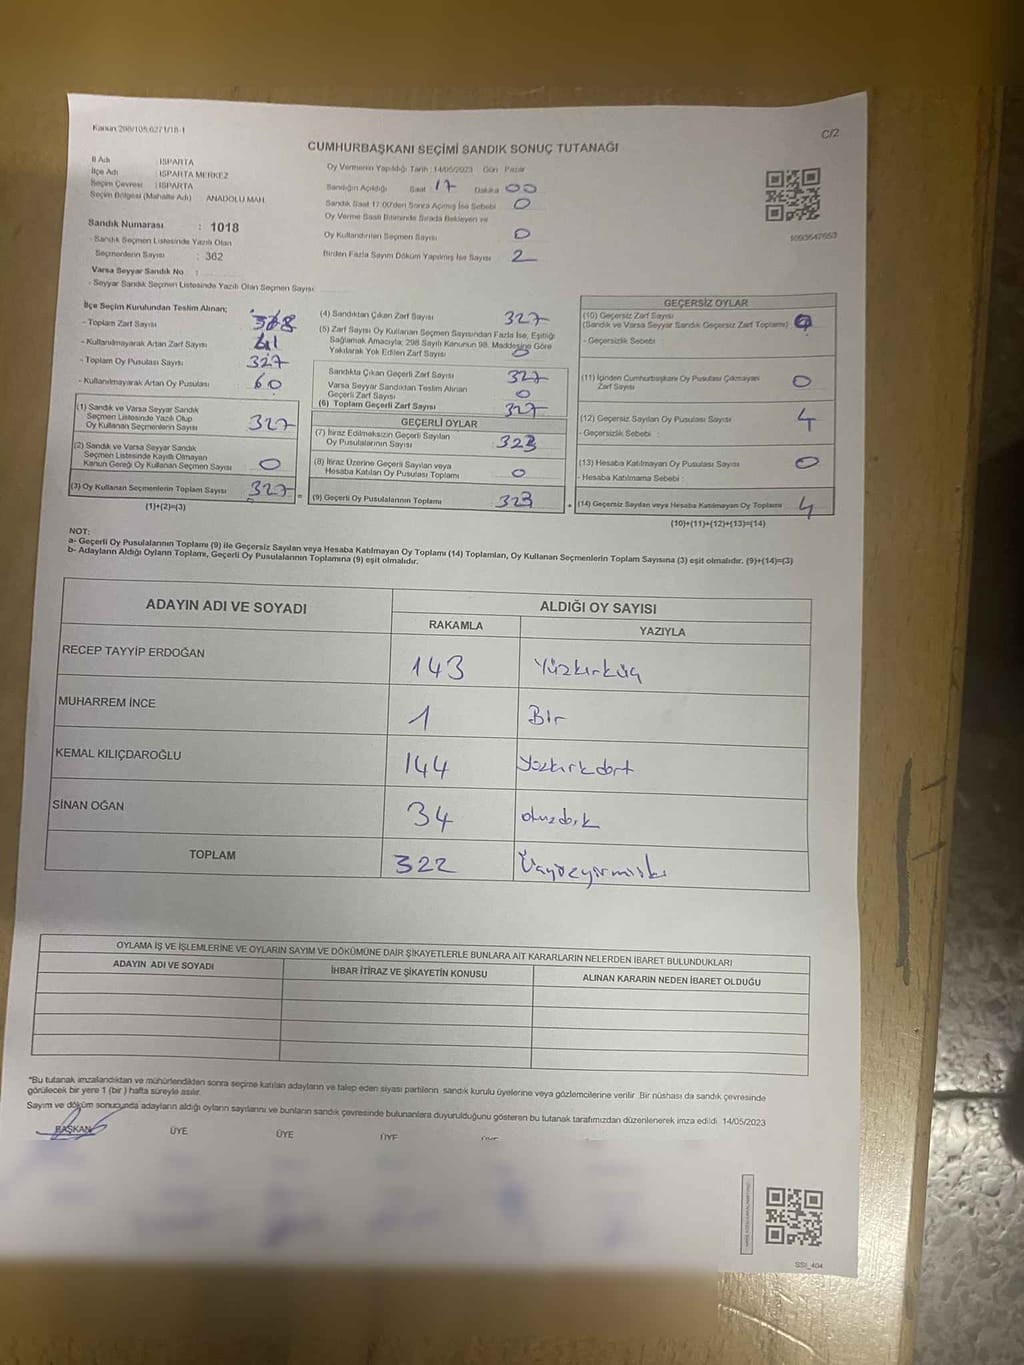 Kanun 298/105,6271/18-1
C/2
CUMHURBAŞKANI SEÇİMİ SANDIK SONUÇ TUTANAĞI
İl Adı : ISPARTA
İlçe Adı : ISPARTA MERKEZ
Seçim Çevresi : ISPARTA
Seçim Bölgesi (Mahalle Adı) ANADOLU MAH.
Sandık Numarası : 1018
- Sandık Seçmen Listesinde Yazılı Olan
Seçmenlerin Sayısı : 362
Varsa Seyyar Sandık No :
- Seyyar Sandık Seçmen Listesinde Yazılı Olan Seçmen Sayısı:
Oy Vermenin Yapıldığı Tarih : 14/05/2023 Gün : Pazar
Sandığın Açıldığı Saat : 17 Dakika 00
Sandık Saat 17:00'den Sonra Açılmış İse Sebebi 0
Oy Verme Saati Bitiminde Sırada Bekleyen ve
Oy Kullandırılan Seçmen Sayısı 0
Birden Fazla Sayım Döküm Yapılmış İse Sayısı 2
1093647653
İlçe Seçim Kurulundan Teslim Alınan;
- Toplam Zarf Sayısı
- Kullanılmayarak Artan Zarf Sayısı 41
- Toplam Oy Pusulası Sayısı 327
- Kullanılmayarak Artan Oy Pusulası 60
(1) Sandık ve Varsa Seyyar Sandık
Seçmen Listesinde Yazılı Olup
Oy Kullanan Seçmenlerin Sayısı 327
(2) Sandık ve Varsa Seyyar Sandık
Seçmen Listesinde Kayıtlı Olmayan
Kanun Gereği Oy Kullanan Seçmen Sayısı 0
(3) Oy Kullanan Seçmenlerin Toplam Sayısı 327
(1)+(2)=(3)
(4) Sandıktan Çıkan Zarf Sayısı 327
(5) Zarf Sayısı Oy Kullanan Seçmen Sayısından Fazla İse, Eşitliği
Sağlamak Amacıyla; 298 Sayılı Kanunun 98. Maddesine Göre
Yakılarak Yok Edilen Zarf Sayısı 0
Sandıkta Çıkan Geçerli Zarf Sayısı 327
Varsa Seyyar Sandıktan Teslim Alınan
Geçerli Zarf Sayısı 0
(6) Toplam Geçerli Zarf Sayısı 327
GEÇERLİ OYLAR
(7) İtiraz Edilmeksizin Geçerli Sayılan
Oy Pusulalarının Sayısı 323
(8) İtiraz Üzerine Geçerli Sayılan veya
Hesaba Katılan Oy Pusulası Toplamı 0
(9) Geçerli Oy Pusulalarının Toplamı 323
GEÇERSİZ OYLAR
(10) Geçersiz Zarf Sayısı
(Sandık ve Varsa Seyyar Sandık Geçersiz Zarf Toplamı)
- Geçersizlik Sebebi :
(11) İçinden Cumhurbaşkanı Oy Pusulası Çıkmayan
Zarf Sayısı 0
(12) Geçersiz Sayılan Oy Pusulası Sayısı 4
- Geçersizlik Sebebi :
(13) Hesaba Katılmayan Oy Pusulası Sayısı 0
- Hesaba Katılmama Sebebi :
(14) Geçersiz Sayılan veya Hesaba Katılmayan Oy Toplamı 4
(10)+(11)+(12)+(13)=(14)
NOT:
a- Geçerli Oy Pusulalarının Toplamı (9) ile Geçersiz Sayılan veya Hesaba Katılmayan Oy Toplamı (14) Toplamları, Oy Kullanan Seçmenlerin Toplam Sayısına (3) eşit olmalıdır. (9)+(14)=(3)
b- Adayların Aldığı Oyların Toplamı, Geçerli Oy Pusulalarının Toplamına (9) eşit olmalıdır.
ADAYIN ADI VE SOYADI
ALDIĞI OY SAYISI
RAKAMLA
YAZIYLA
RECEP TAYYİP ERDOĞAN 143 Yüzkırküç
MUHARREM İNCE 1 Bir
KEMAL KILIÇDAROĞLU 144 yüzkırkdört
SİNAN OĞAN 34 otuzdört
TOPLAM 322 Üçyüzyirmiiki
OYLAMA İŞ VE İŞLEMLERİNE VE OYLARIN SAYIM VE DÖKÜMÜNE DAİR ŞİKAYETLERLE BUNLARA AİT KARARLARIN NELERDEN İBARET BULUNDUKLARI
ADAYIN ADI VE SOYADI
İHBAR İTİRAZ VE ŞİKAYETİN KONUSU
ALINAN KARARIN NEDEN İBARET OLDUĞU
*Bu tutanak imzalandıktan ve mühürlendikten sonra seçime katılan adayların ve talep eden siyasi partilerin sandık kurulu üyelerine veya gözlemcilerine verilir. Bir nüshası da sandık çevresinde
görülecek bir yere 1 (bir) hafta süreyle asılır.
Sayım ve döküm sonucunda adayların aldığı oyların sayılarını ve bunların sandık çevresinde bulunanlara duyurulduğunu gösteren bu tutanak tarafımızdan düzenlenerek imza edildi. 14/05/2023
BAŞKAN ÜYE ÜYE ÜYE ÜYE
SSI_404